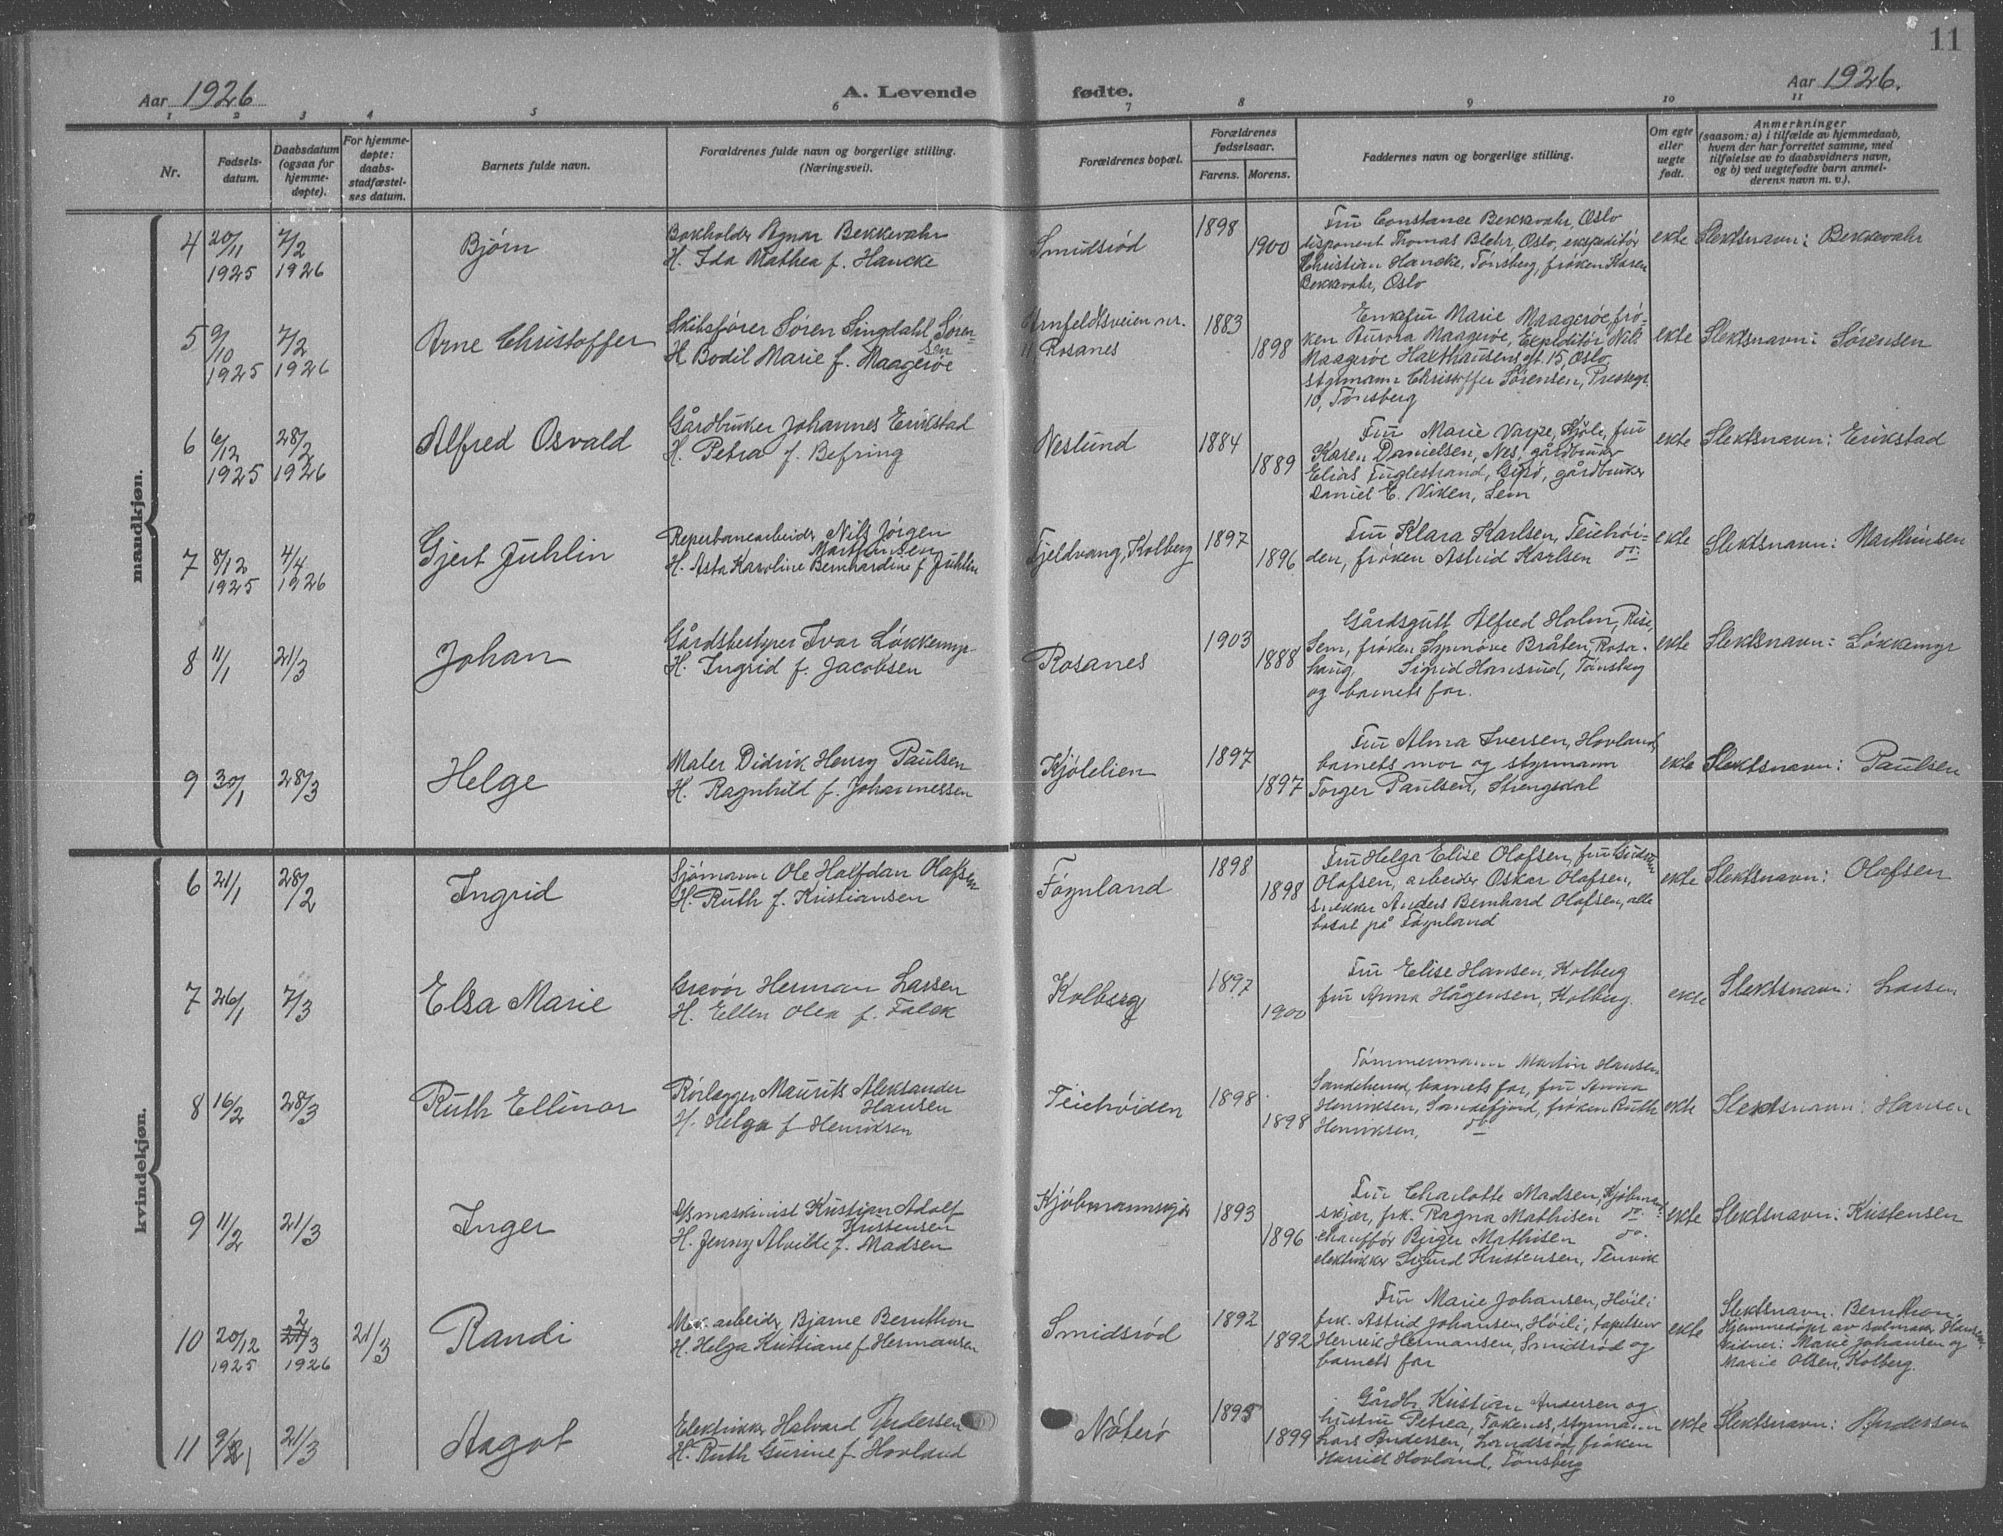 11
Aar 1926
A. Levende
fødte.
Aar 1926.
1 2 3 4 5 6 7 8 9 10 11
Nr.
Fødsels-
datum.
Daabsdatum
(ogsaa for
hjemme-
døpte).
For hjemme-
døpte:
daabs-
stadfæstel-
ses datum.
Barnets fulde navn.
Forældrenes fulde navn og borgerlige stilling.
(Næringsvei).
Forældrenes bopæl.
Forældrenes
fødselsaar.
Farens. Morens.
Faddernes navn og borgerlige stilling.
Om egte
eller
uegte
født.
Anmerkninger
(saasom: a) i tilfælde av hjemmedaab,
hvem der har forrettet samme, med
tilføielse av to daabsvidners navn,
og b) ved uegtefødte barn anmel-
derens navn m. v.).
mandkjøn.
4 20/11 1925 7/2 1926
Bjørn
Bokholder Agnar Bekkevahr
H. Ida Mathea f. Hancke
Smidsrød
1898 1900
Fru Constance Bekkevahr, Oslo
disponent Thomas Blehr, Oslo, ekspeditør
Christian Hancke, Tønsberg, frøken Karen
Bekkevahr, Oslo
ekte
Slektsnavn: Bekkevahr
5 9/10 1925 7/2 1926
Arne Christoffer
Skibsfører Søren Lingdahl Søren-
sen
H. Bodil Marie f. Maagerøe
Arnfeldtsveien nr.
11 Rosanes
1883 1898
Enkefru Marie Maagerøe, frø-
ken Aurora Maagerøe, Expeditør Nils
Maagerøe Haxthausens gt. 15, Oslo
styrmann Christoffer Sørensen, Prestegt
10, Tønsberg
ekte
Slektsnavn: Sørensen
6 6/12 1925 28/2 1926
Alfred Osvald
Gårdbruker Johannes Erikstad
H. Petra f. Befring
Neslund
1884 1889
Fru Marie Varpe, Kjøle, fru
Karen Danielsen, Nes, gårdbruker
Elias Fuglestrand, Gipø, gårdbruker
Daniel E. Viken, Sem
ekte
Slektsnavn: Erikstad
7 8/12 1925 4/4 1926
Gjert Juhlin
Reperbanearbeider Nils Jørgen
Marthinsen
H. Asta Karoline Bernhardine f Juhlin
Fjeldvang, Kolberg
1897 1896
Fru Klara Karlsen, Teiehøi-
den, frøken Astrid Karlsen do
ekte
Slektsnavn: Marthinsen
8 11/1 21/3
Johan
Gårdsbestyrer Ivar Løkkemyr
H. Ingrid f. Jacobsen
Rosanes
1903 1888
Gårdsgutt Alfred Holm, Rise,
Sem, frøken Synnøve Bråten, Rosa-
haug, Sigrid Hansrud, Tønsberg
og barnets far.
ekte
Slektsnavn: Løkkemyr
9 30/1 28/3
Helge
Maler Didrik Henry Paulsen
H. Ragnhild f. Johannessen
Kjølelien
1897 1897
Fru Alma Iversen, Hovland,
barnets mor og styrmann
Torger Paulsen, Strengsdal
ekte
Slektsnavn: Paulsen
kvindekjøn.
6 21/1 28/2
Ingrid
Sjømann Ole Halfdan Olafsen
H. Ruth f. Kristiansen
Føynland
1898 1898
Fru Helga Elise Olafsen, fru Gudrun
Olafsen, arbeider Oskar Olafsen,
snekker Anders Bernhard Olafsen, alle
bosat på Føynland
ekte
Slektsnavn: Olafsen
7 26/1 7/3
Elsa Marie
Gravør Herman Larsen
H. Ellen Olea f. Falck
Kolberg
1897 1900
Fru Elise Hansen, Kolberg
fru Anna Hågensen, Kolberg.
ekte
Slektsnavn: Larsen
8 16/2 28/3
Ruth Ellinor
Rørlegger Maurits Aleksander
Hansen
H. Helga f Henriksen
Teiehøiden
1898 1898
Tømmermann Martin Hansen
Sandeherred, barnets far, fru Anna
Henriksen, Sandefjord, frøken Ruth
Henriksen, do
ekte
Slektsnavn: Hansen
9 11/2 21/3
Inger
D/S maskinist Kristian Adolf
Kristensen
H. Jenny Alvilde f. Madsen
Kjøbmannskjær
1893 1896
Fru Charlotte Madsen, Kjøbmand
skjær, frk. Ragna Mathisen do
chauffør Birger Mathisen do.
elektriker Sigurd Kristensen, Tenvik
ekte
Slektsnavn: Kristensen
10 20/12 1925 2/3 1926 21/3
Randi
Mek. arbeider Bjarne Bernthon
H. Helga Kristiane f Hermansen
Smidsrød
1892 1892
Fru Marie Johansen, Høili
frk. Astrid Johansen, Høili, tapetserer
Henrik Hermansen, Smidsrød og
barnets far
ekte
Slektsnavn: Bernthon
Hjemmedøpt av salmaker Hansen
Vidner: Marie Johansen og
Marie Olsen, Kolberg.
11 21/3
Aagot
Elektriker Halvard Andersen
H. Ruth Gurine f. Hovland
Nøterø
1895 1899
Gårdbr. Kristian Andersen og
hustru Petrea, Tokenes, styrmann
Lars Andersen, Landsrød, frøken
Harriet Hovland, Tønsberg
ekte
Slektsnavn: Andersen